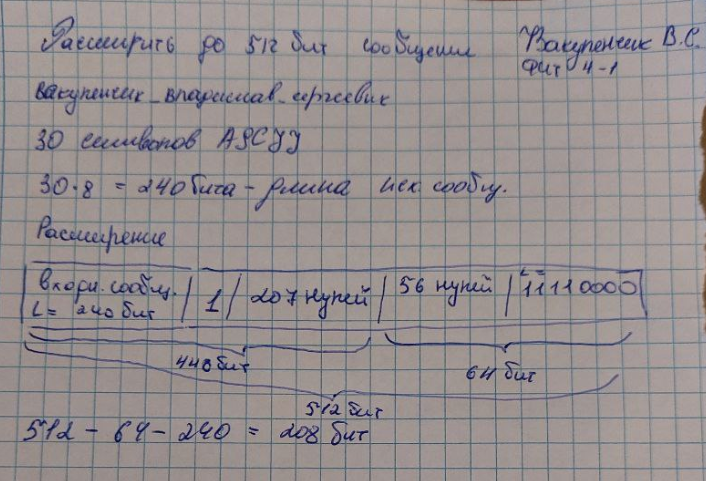 Расширить до 512 бит сообщение
Вакупенчик В.С.
ФИТ 4-1
вакупенчик_владислав_сергеевич
30 символов ASCJJ
30·8 = 240 бита - длина исх. сообщ.
Расширение
входн. сообщ. | 1 | 207 нулей | 56 нулей | 11110000
L = 240 бит
448 бит
64 бит
512 бит
512 - 64 - 240 = 208 бит